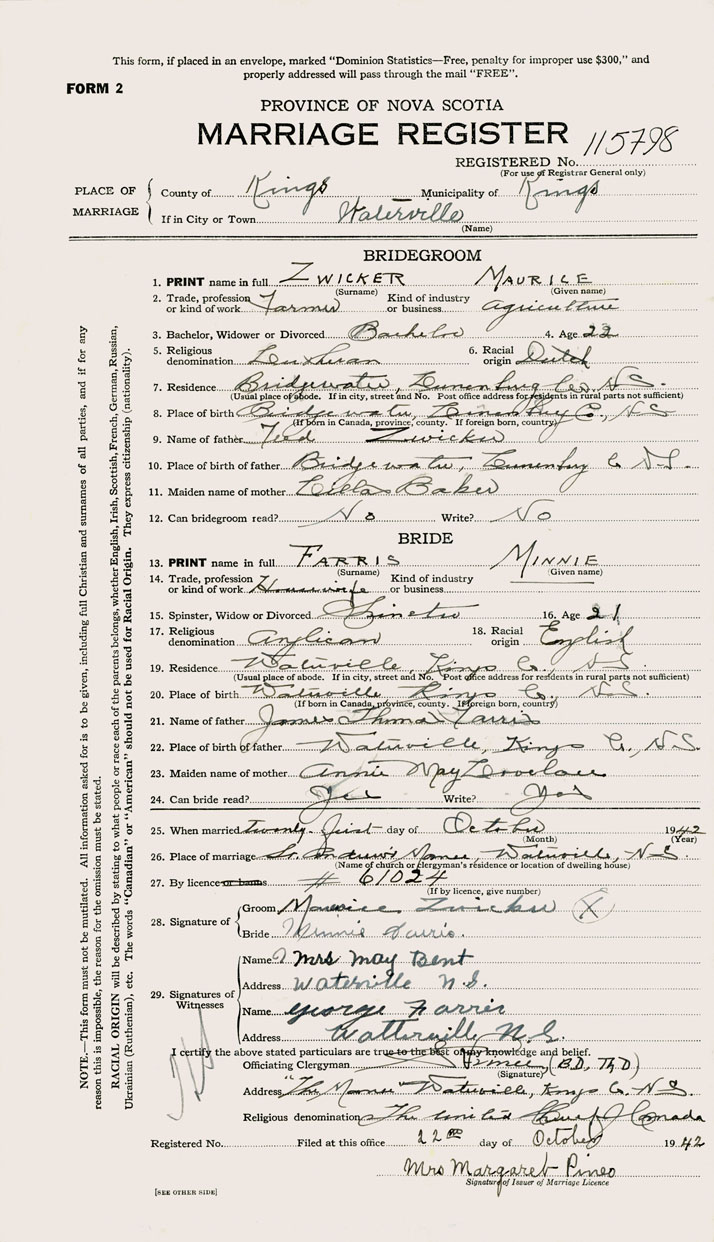 This form, if placed in an envelope, marked "Dominion Statistics—Free, penalty for improper use $300," and
properly addressed will pass through the mail "FREE".
FORM 2
PROVINCE OF NOVA SCOTIA
MARRIAGE REGISTER 115798
REGISTERED No.
(For use of Registrar General only)
PLACE OF MARRIAGE
County of Kings Municipality of Kings
If in City or Town Waterville
(Name)
BRIDEGROOM
1. PRINT name in full ZWICKER MAURICE
(Surname) (Given name)
2. Trade, profession or kind of work Farmer Kind of industry or business Agriculture
3. Bachelor, Widower or Divorced Bachelor 4. Age 22
5. Religious denomination Lutheran 6. Racial origin Dutch
7. Residence Bridgewater, Lunenburg Co. N.S.
(Usual place of abode. If in city, street and No. Post office address for residents in rural parts not sufficient)
8. Place of birth Bridgewater, Lunenburg Co., N.S
(If born in Canada, province, county. If foreign born, country)
9. Name of father Zwicker
10. Place of birth of father Bridgewater, Lunenburg Co N.S.
11. Maiden name of mother Baker
12. Can bridegroom read? No Write? No
BRIDE
13. PRINT name in full FARRIS MINNIE
(Surname) (Given name)
14. Trade, profession or kind of work Housewife Kind of industry or business
15. Spinster, Widow or Divorced Spinster 16. Age 21
17. Religious denomination Anglican 18. Racial origin English
19. Residence Waterville, Kings Co. N.S
(Usual place of abode. If in city, street and No. Post office address for residents in rural parts not sufficient)
20. Place of birth Waterville Kings Co. N.S.
(If born in Canada, province, county. If foreign born, country)
21. Name of father James Thomas Farris
22. Place of birth of father Waterville, Kings Co., N.S.
23. Maiden name of mother Annie May Lovelace
24. Can bride read? Yes Write? Yes
25. When married twenty-first day of October 1942
(Month) (Year)
26. Place of marriage St. Andrew's Manse, Waterville, N.S
(Name of church or clergyman's residence or location of dwelling house)
27. By licence or banns # 61024
(If by licence, give number)
28. Signature of
Groom Maurice Zwicker X
Bride Minnie Farris.
29. Signatures of Witnesses
Name Mrs May Bent
Address Waterville N.S.
Name George Farris
Address Watterville N.S.
I certify the above stated particulars are true to the best of my knowledge and belief.
Officiating Clergyman (BD, ThD)
(Signature)
Address "The Manse" Waterville, Kings Co. N.S.
Religious denomination The United Church of Canada
Registered No. Filed at this office 22nd day of October 1942
Mrs Margaret Pineo
Signature of Issuer of Marriage Licence
[SEE OTHER SIDE]
NOTE.—This form must not be mutilated. All information asked for is to be given, including full Christian and surnames of all parties, and if for any
reason this is impossible, the reason for the omission must be stated.
RACIAL ORIGIN will be described by stating to what people or race each of the parents belongs, whether English, Irish, Scottish, French, German, Russian,
Ukrainian (Ruthenian), etc. The words "Canadian" or "American" should not be used for Racial Origin. They express citizenship (nationality).